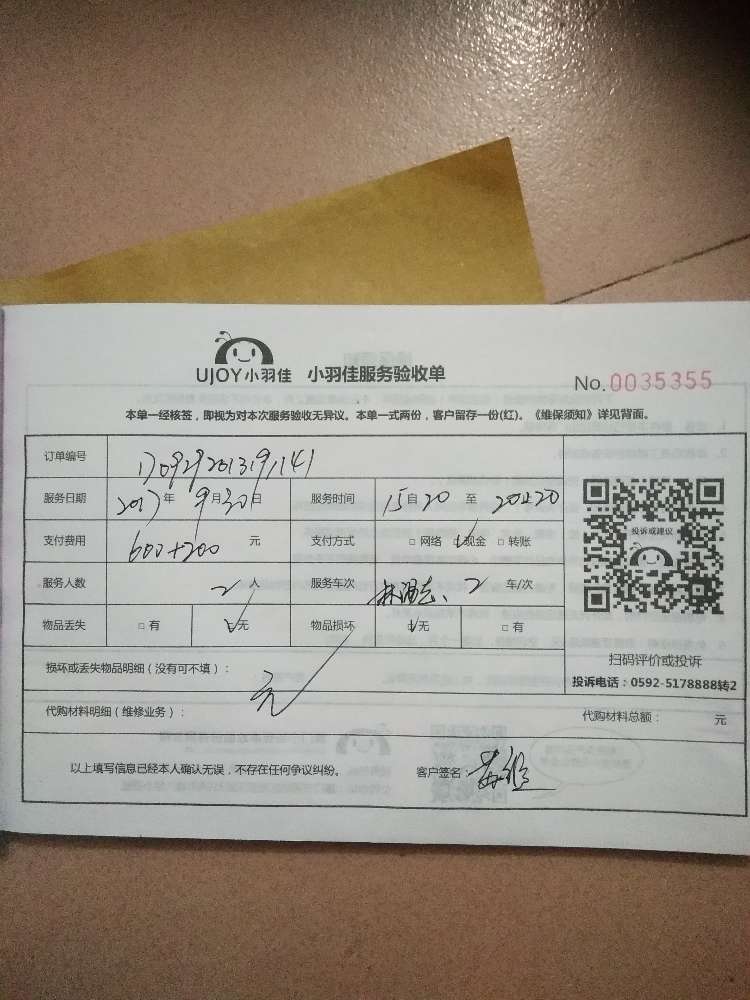 UJOY小羽佳 小羽佳服务验收单
No.0035355
本单一经核签，即视为对本次服务验收无异议。本单一式两份，客户留存一份(红)。《维保须知》详见背面。
订单编号 1709292013191141
服务日期 2017年 9月30日 服务时间 15时20 至 20时20
支付费用 600+200 元 支付方式 □ 网络 □ 现金 □ 转账
服务人数 2 人 服务车次 2 车/次
物品丢失 □ 有 □ 无 物品损坏 □ 无 □ 有
投诉或建议
扫码评价或投诉
投诉电话：0592-5178888转2
损坏或丢失物品明细（没有可不填）： 无
代购材料明细（维修业务）： 代购材料总额： 元
以上填写信息已经本人确认无误，不存在任何争议纠纷。 客户签名：